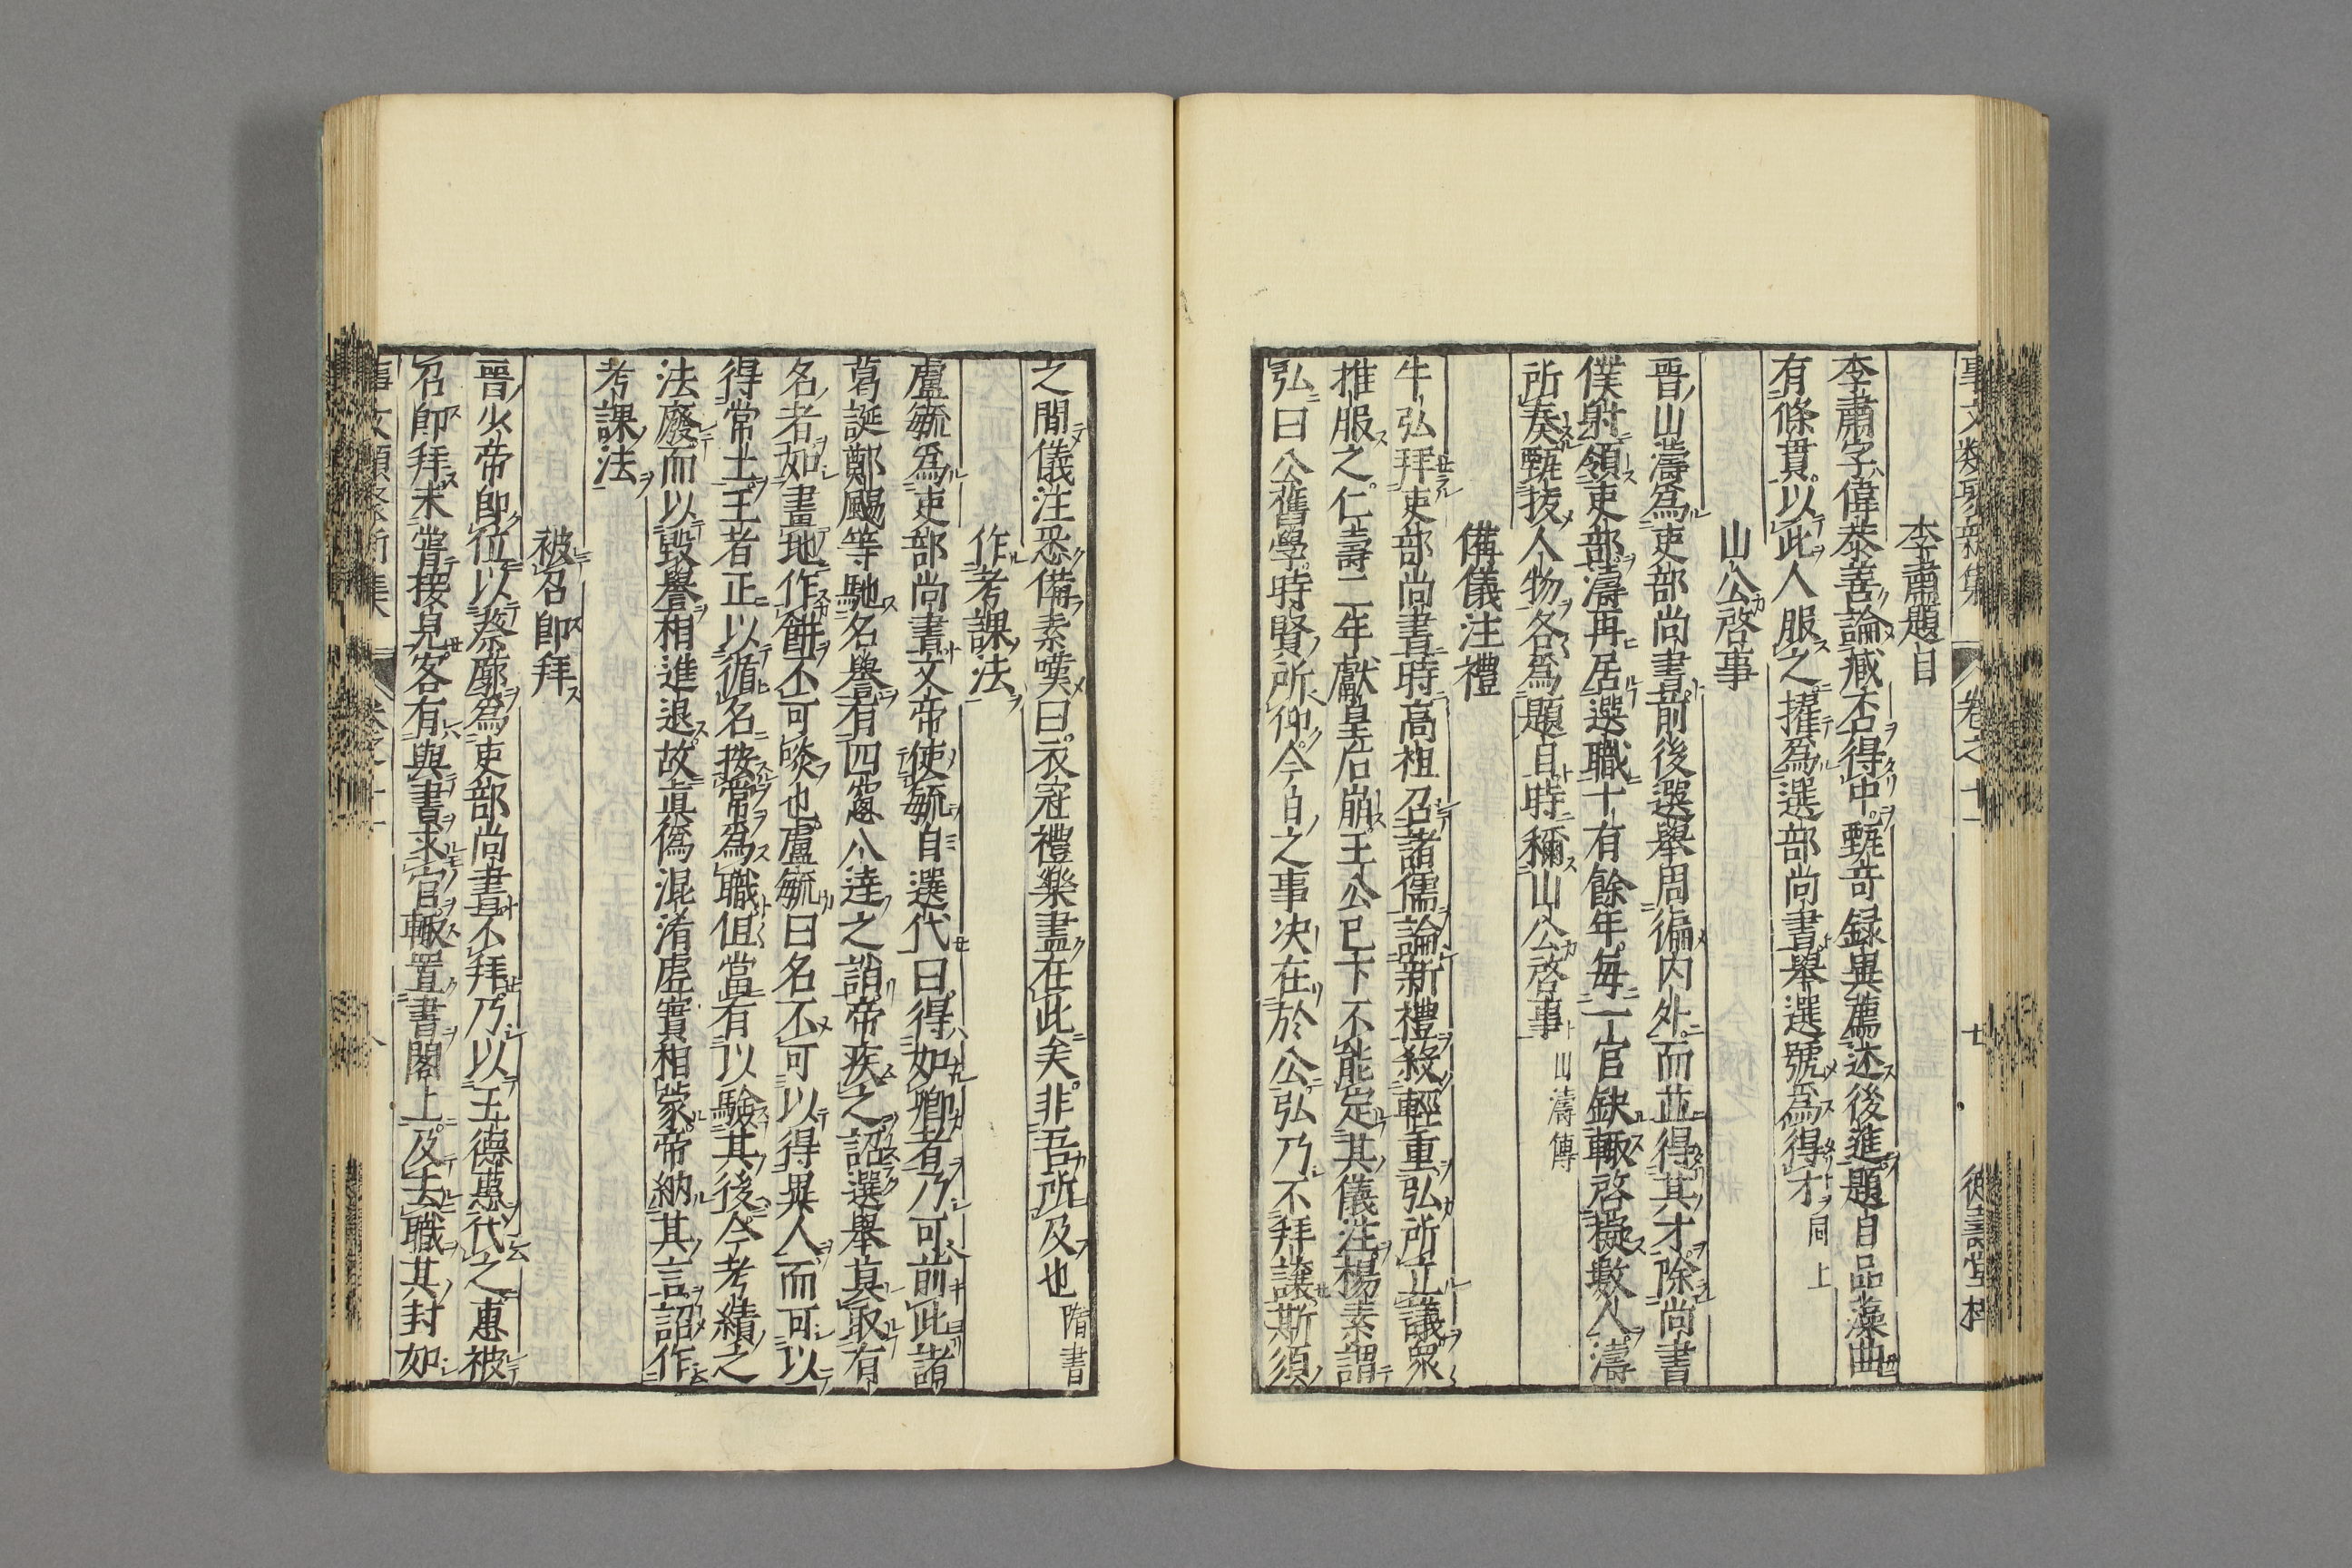 事文類聚新集 卷之十一
李肅題目
李肅字偉恭善論臧否得中甄奇録異薦述後進題目品藻曲
有條貫以此人服之擢爲選部尚書舉選號爲得才同上
山公啓事
晋山濤爲吏部尚書前後選舉周徧内外而並得其才除尚書
僕射領吏部濤再居選職十有餘年毎一官缺輙啓擬數人濤
所奏甄拔人物各爲題目時稱山公啓事山濤傳
備儀注禮
牛弘拜吏部尚書時高祖召諸儒論新禮殺輕重弘所立議衆
推服之仁壽二年獻皇后崩王公已下不能定其儀注楊素謂
弘曰公舊學時賢所仰今日之事决在於公弘乃不拜讓斯須
之間儀注悉備素嘆曰衣冠禮樂盡在此矣非吾所及也隋書
作考課法
盧毓爲吏部尚書文帝使毓自選代曰得如卿者乃可前此諸
葛誕鄭颺等馳名譽有四窓八達之誚帝疾之詔選舉莫取有
名者如畫地作餅不可啖也盧毓曰名不可以得異人而可以
得常士王者正以循名按常爲職但當有以驗其後今考績之
法廢而以毀譽相進退故眞僞混淆虚實相蒙帝納其言詔作
考課法
被召即拜
晋少帝即位以蔡廓爲吏部尚書不拜乃以王德惠代之惠被
召即拜未嘗接見客有與書求官輙置書閣上及去職其封如